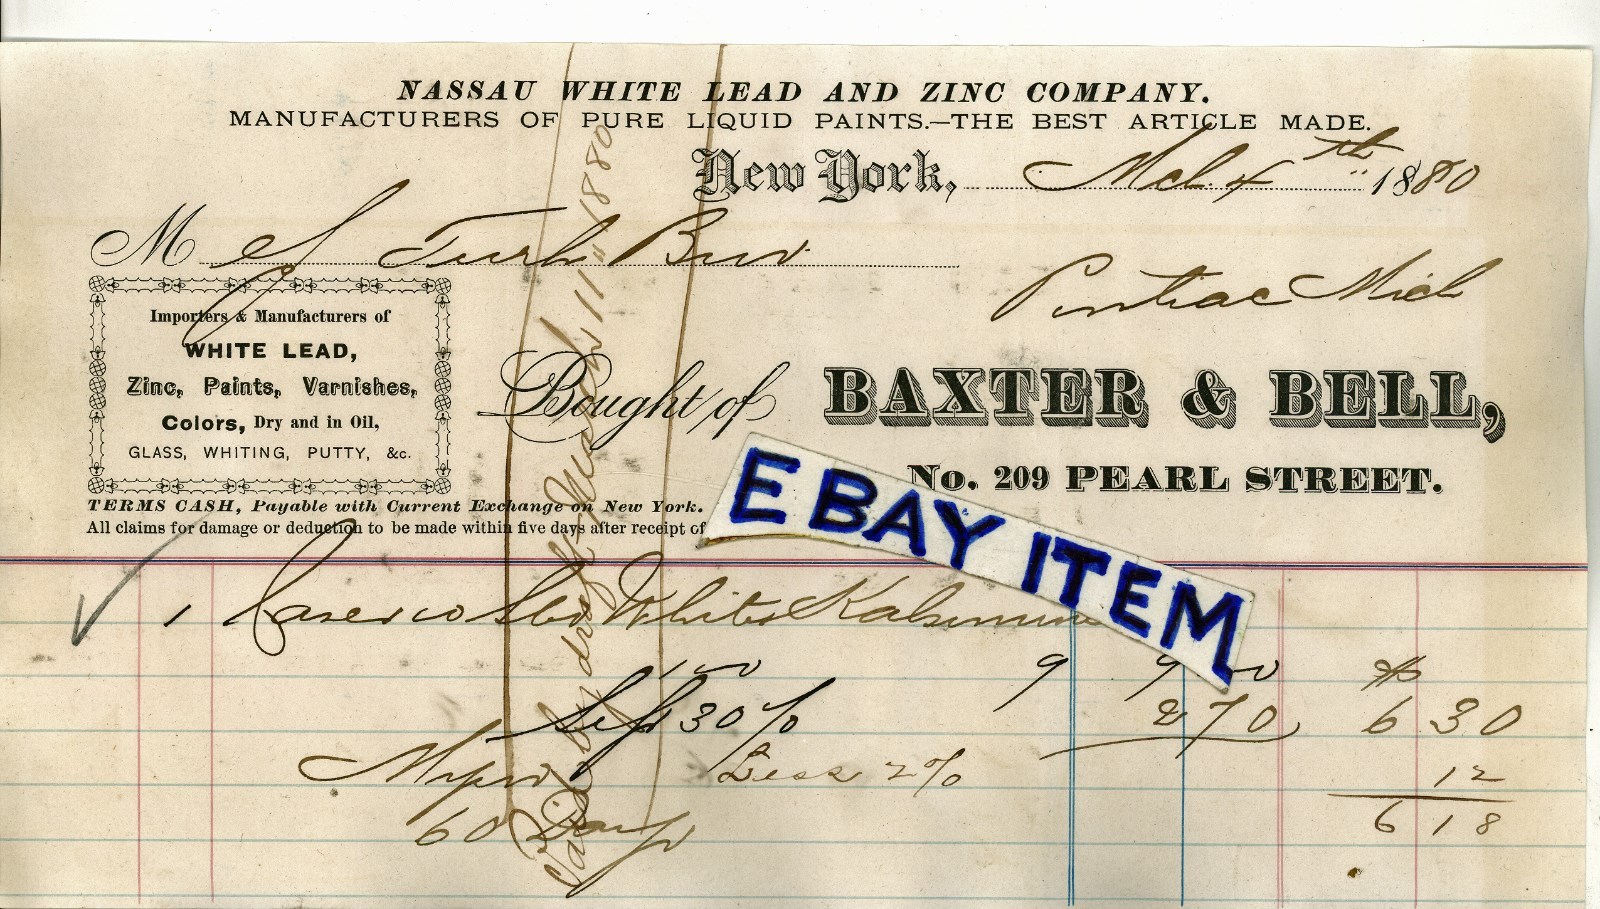 NASSAU WHITE LEAD AND ZINC COMPANY.
MANUFACTURERS OF PURE LIQUID PAINTS.—THE BEST ARTICLE MADE.
New York, Mch. 4th 1880
M
Pontiac Mich
Importers & Manufacturers of
WHITE LEAD,
Zinc, Paints, Varnishes,
Colors, Dry and in Oil,
GLASS, WHITING, PUTTY, &c.
Bought of BAXTER & BELL,
No. 209 PEARL STREET.
TERMS CASH, Payable with Current Exchange on New York.
All claims for damage or deduction to be made within five days after receipt of
EBAY ITEM
1 Case White
9 9
30% 2 70 6 30
Less 2% 12
60 Days 6 18
Paid by draft March 11th 1880